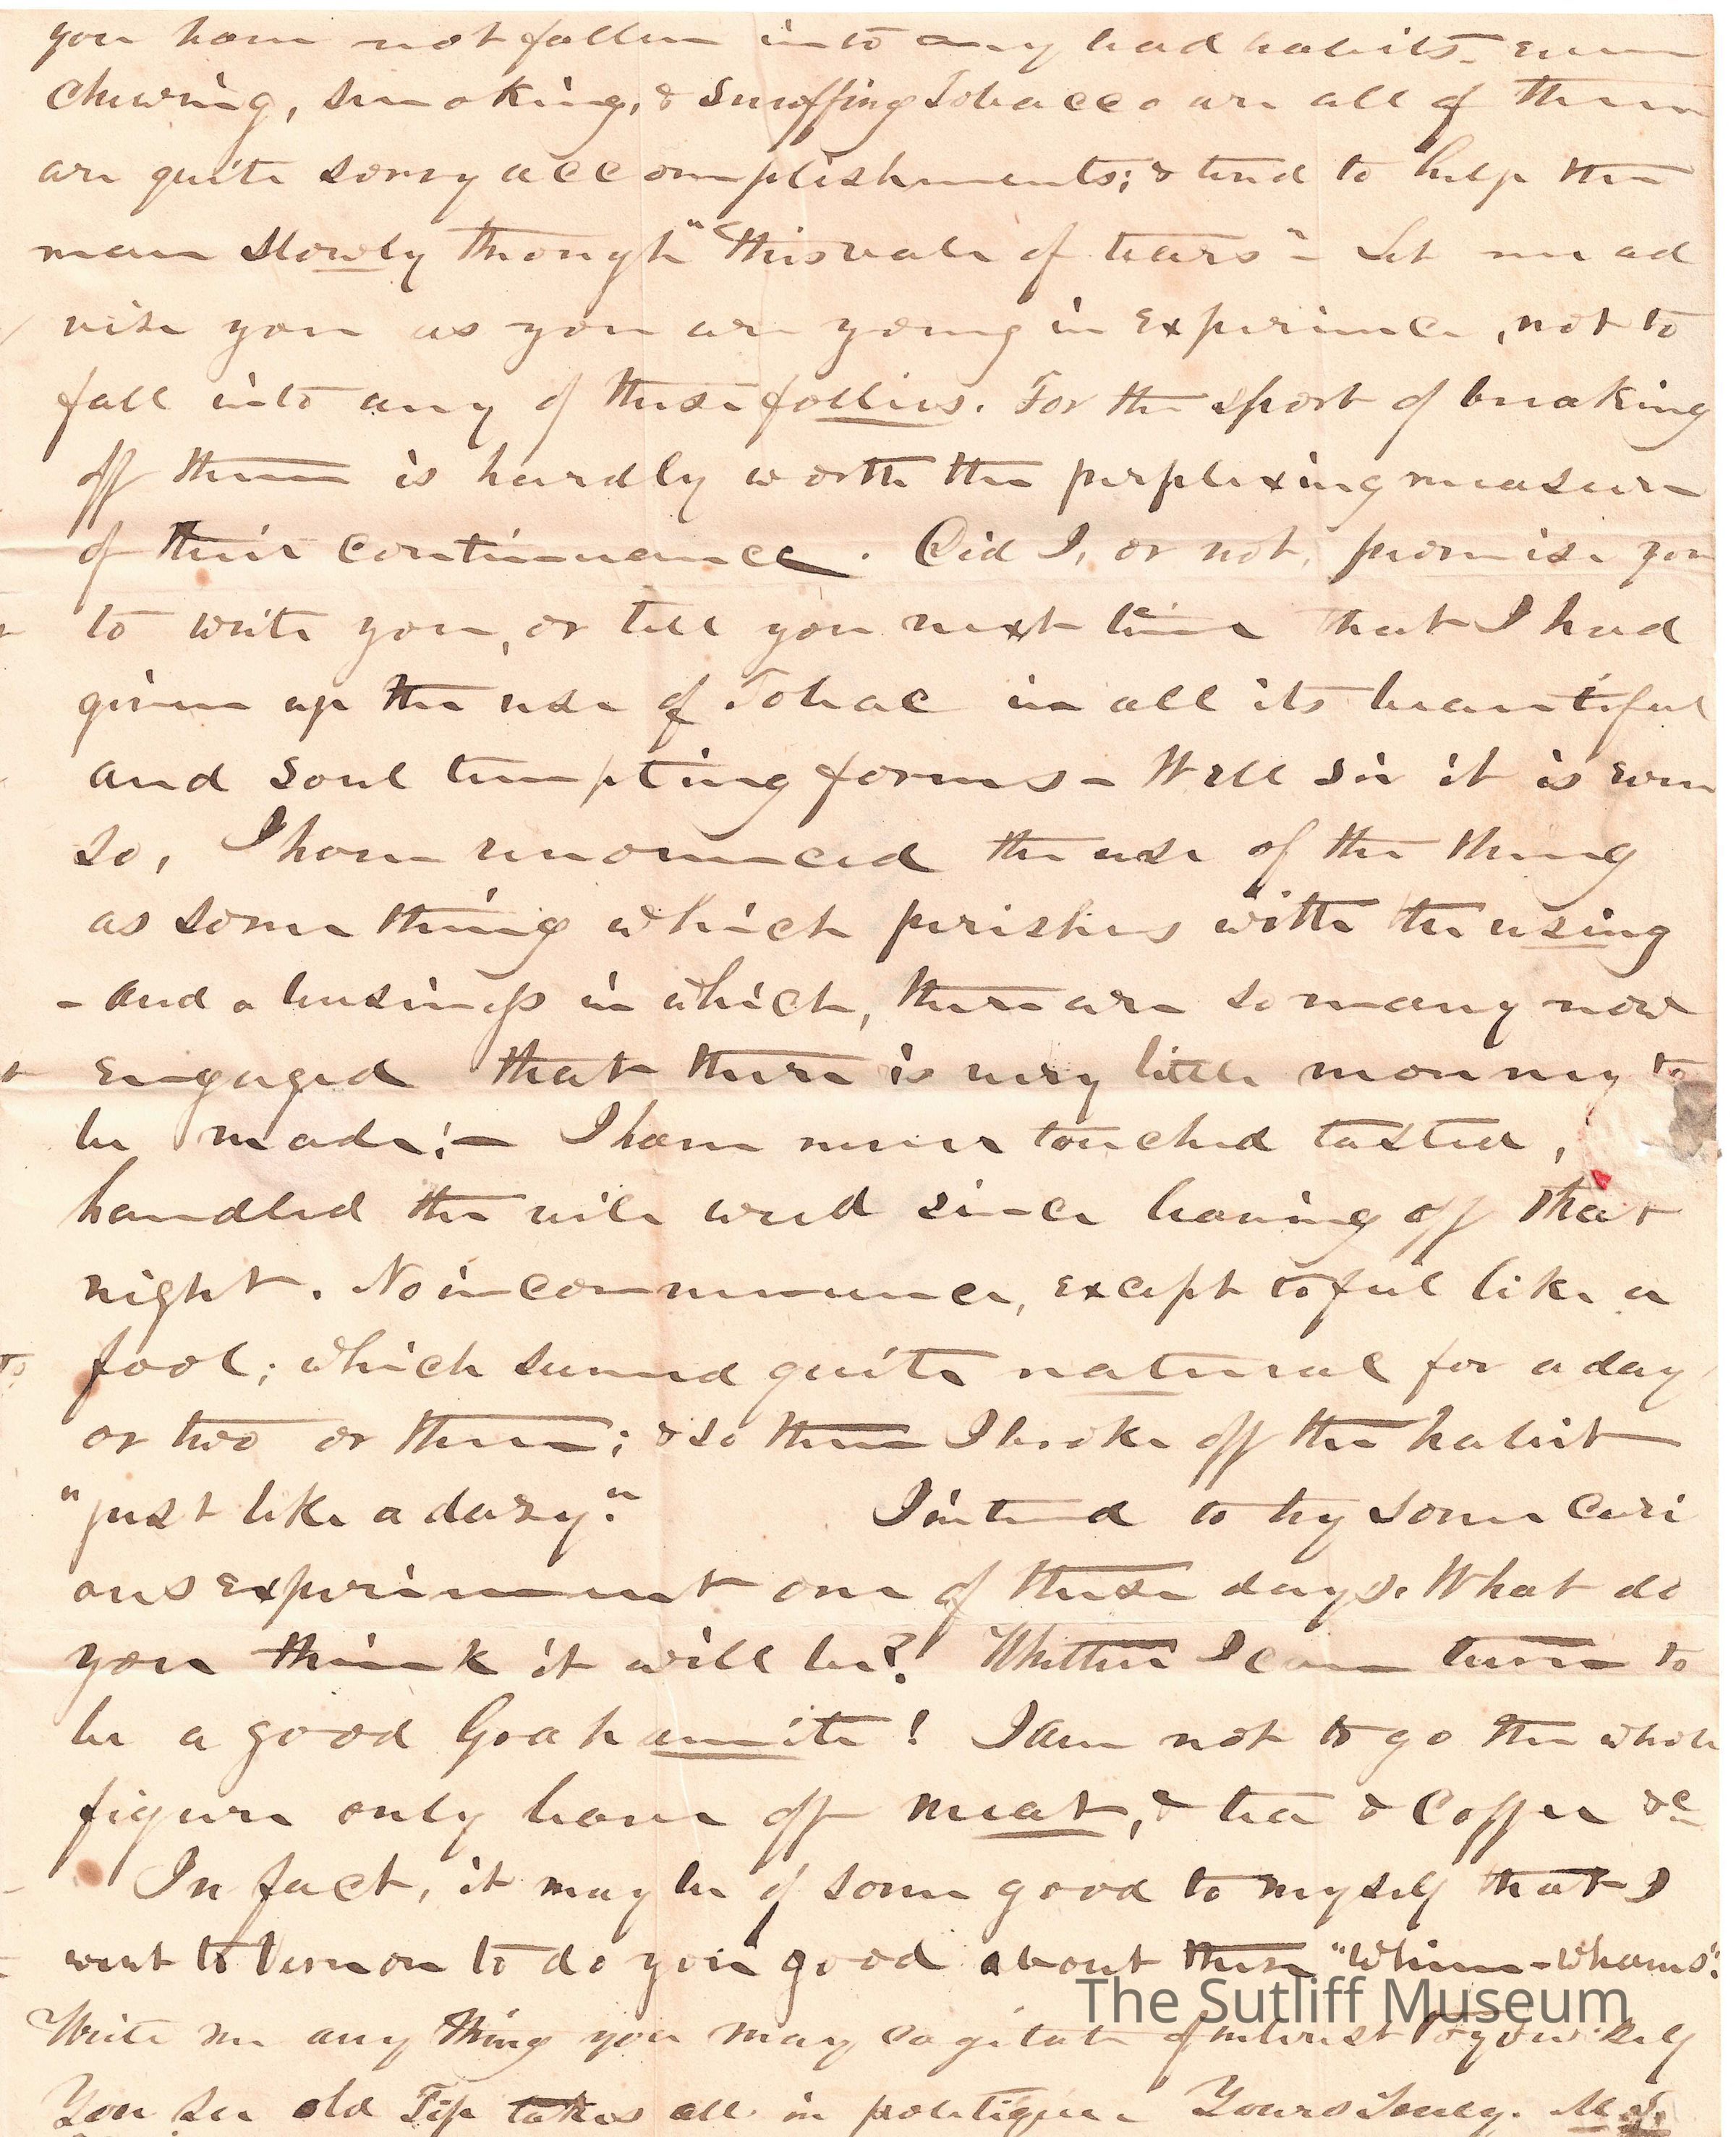 you have not fallen into any bad habits - even
Chewing, smoking, & Snuffing Tobacco are all of them
are quite sorry accomplishments; & tend to help the
man slowly through "this vale of tears" - Let me ad
vise you as you are young in Experience, not to
fall into any of these follies. For the sport of breaking
off them is hardly worth the perplexing measure
of their continuance. Did I, or not, promise you
to write you, or tell you next time that I had
given up the use of Tobac in all its beautiful
and soul tempting forms - Well sir it is even
so, I have renounced the use of the thing
as some thing which perishes with the using
- and a business in which, there are so many now
engaged that there is very little monney to
be made; - I have never touched tasted,
handled the vile weed since leaving off that
night. No inconvenience, except to feel like a
fool; which seemed quite natural for a day
or two or three; & so then I broke off the habit
"just like a dazy." I intend to try some Curi
ous experiment one of these days. What do
you think it will be? Whether I can turn to
be a good Grahamite! I am not to go the whole
figure only leave off meat, & tea & Coffee &c
In fact, it may be of some good to myself that I
went to Vernon to do you good about these "Whim-Whams".
The Sutliff Museum
Write me any thing you may cogitate of interest to yourself
You see old Tip takes all in politique Yours Truly. M.S.